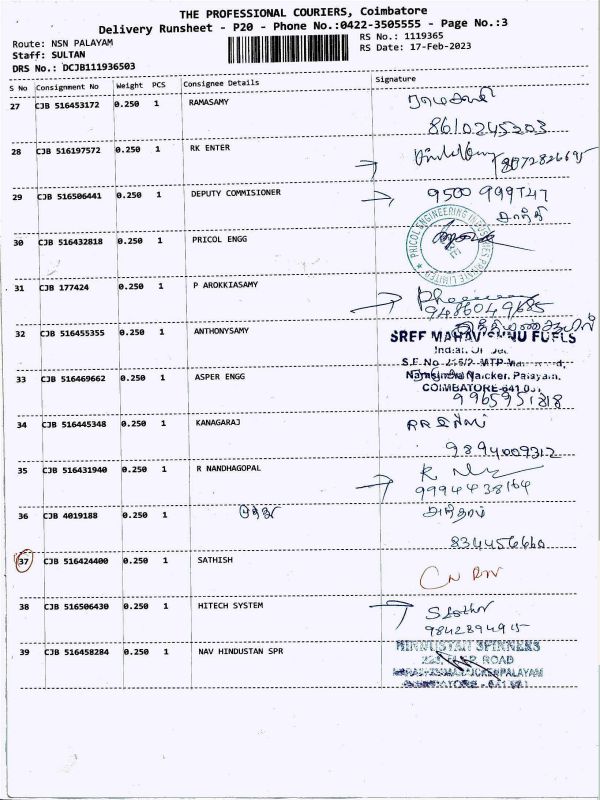 THE PROFESSIONAL COURIERS, Coimbatore
Delivery Runsheet - P20 - Phone No.:0422-3505555 - Page No.:3
Route: NSN PALAYAM
RS No.: 1119365
Staff: SULTAN
RS Date: 17-Feb-2023
DRS No.: DCJB111936503
S No Consignment No Weight PCS Consignee Details Signature
27 CJB 516453172 0.250 1 RAMASAMY ராமசாமி
8610245203
28 CJB 516197572 0.250 1 RK ENTER
29 CJB 516506441 0.250 1 DEPUTY COMMISIONER 9500 999747
30 CJB 516432818 0.250 1 PRICOL ENGG PRICOL ENGINEERING INDUSTRIES PRIVATE LIMITED
31 CJB 177424 0.250 1 P AROKKIASAMY
9486049685
32 CJB 516455355 0.250 1 ANTHONYSAMY
33 CJB 516469662 0.250 1 ASPER ENGG
COIMBATORE-641 031
9965951818
34 CJB 516445348 0.250 1 KANAGARAJ
9894009312
35 CJB 516431940 0.250 1 R NANDHAGOPAL
9994438164
36 CJB 4019188 0.250 1
8344566660
37 CJB 516424400 0.250 1 SATHISH
38 CJB 516506430 0.250 1 HITECH SYSTEM
9842894915
39 CJB 516458284 0.250 1 NAV HINDUSTAN SPR HINDUSTAN SPINNERS